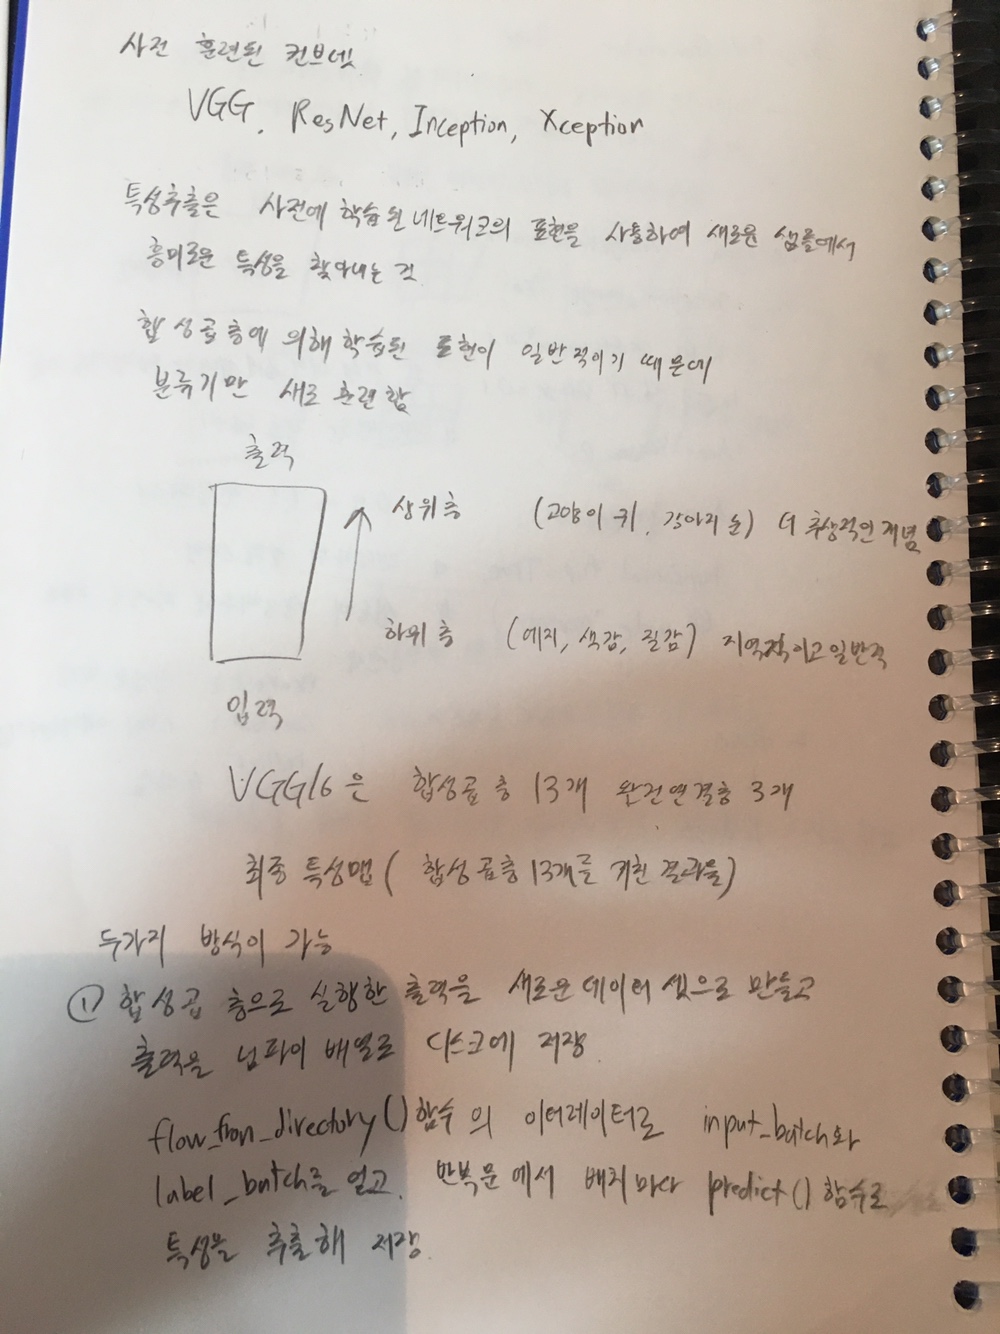 사전 훈련된 컨브넷
VGG, ResNet, Inception, Xception
특성추출은 사전에 학습된 네트워크의 표현을 사용하여 새로운 샘플에서
흥미로운 특성을 찾아내는 것
합성곱 층에 의해 학습된 표현이 일반적이기 때문에
분류기만 새로 훈련함
출력
상위 층 (고양이 귀, 강아지 눈) 더 추상적인 개념
하위 층 (에지, 색감, 질감) 지역적이고 일반적
입력
VGG16은 합성곱 층 13개 완전연결층 3개
최종 특성맵 (합성곱층 13개를 거친 결과물)
두가지 방식이 가능
① 합성곱 층으로 실행한 출력을 새로운 데이터 셋으로 만들고
출력을 넘파이 배열로 디스크에 저장.
flow_from_directory() 함수의 이터레이터로 input_batch와
label_batch를 얻고, 반복문에서 배치마다 predict() 함수로
특성을 추출해 저장.